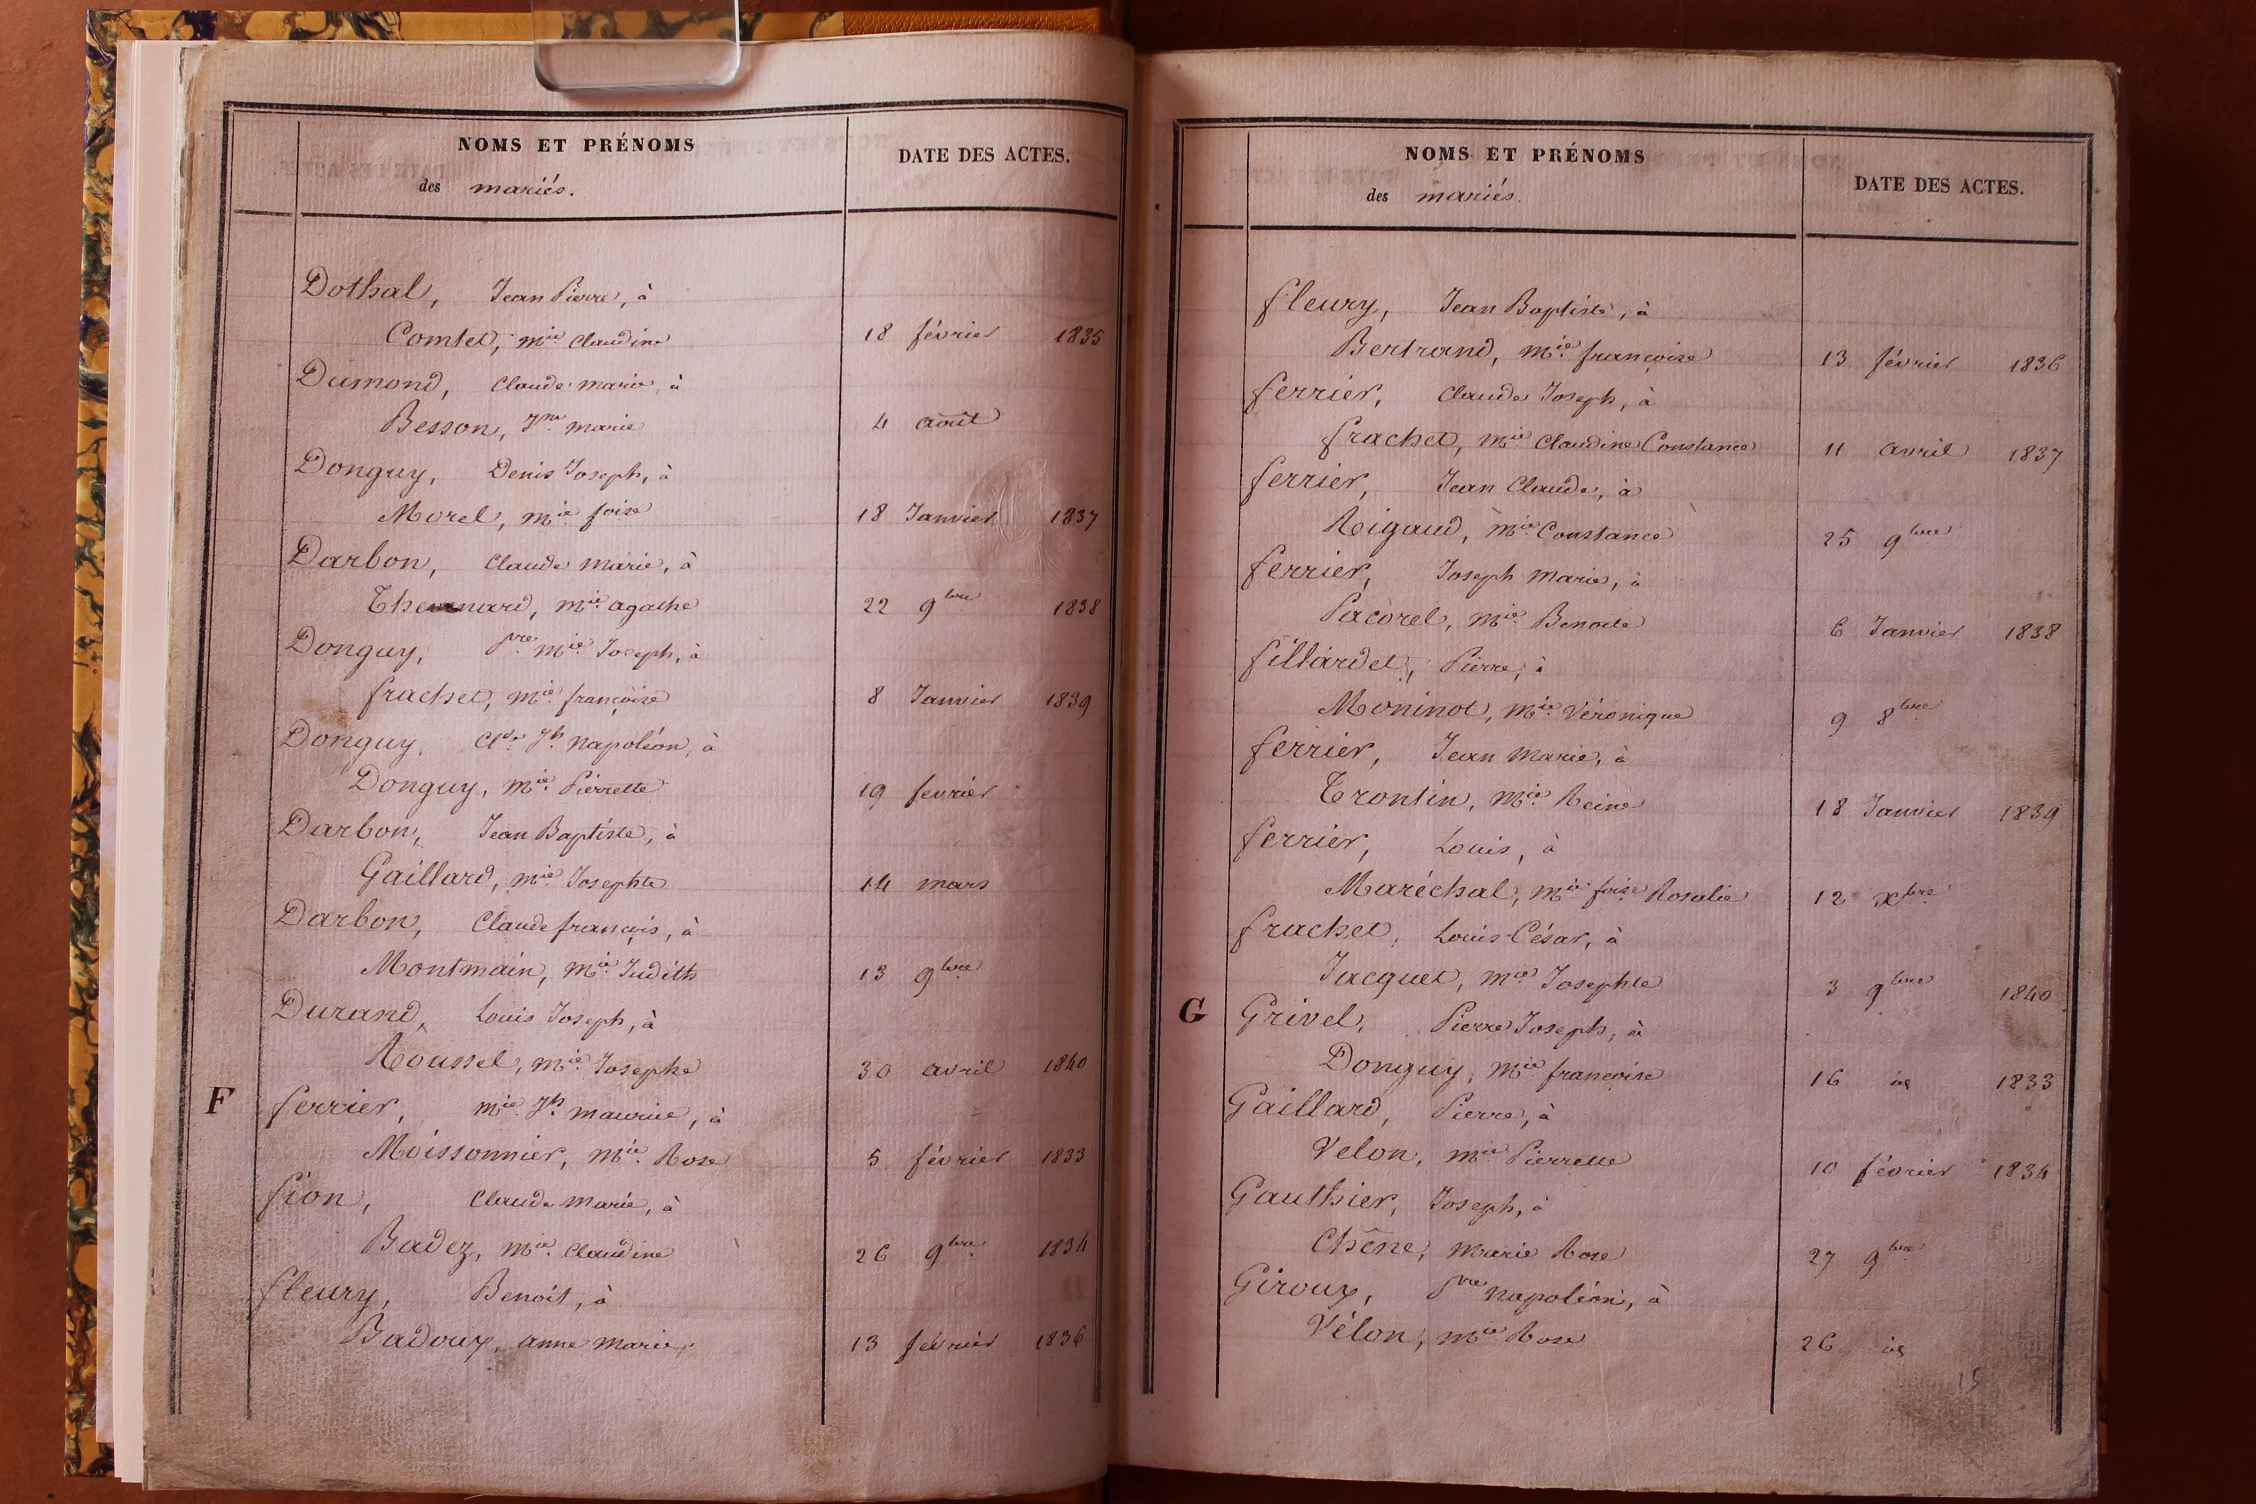 NOMS ET PRÉNOMS
des mariés.
DATE DES ACTES.
Dothal, Jean Pierre, à
Comtet, Mie Claudine 18 février 1835
Dumond, Claude Marie, à
Besson, Jne Marie 4 août
Donguy, Denis Joseph, à
Morel, Mie foise 18 Janvier 1837
Darbon, Claude Marie, à
Mie agathe 22 9bre 1838
Donguy, Pre Mie Joseph, à
frachet, Mie françoise 8 Janvier 1839
Donguy, Cde Jh Napoléon, à
Donguy, Mie Pierrette 19 fevrier
Darbon, Jean Baptiste, à
Gaillard, Mie Josephte 14 mars
Darbon, Claude françois, à
Montmain, Mie Judith 13 9bre
Durand, Louis Joseph, à
Roussel, Mie Josephe 30 avril 1840
F ferrier, Mie Jh Maurice, à
Moissonnier, Mie Rose 5 février 1833
fion, Claude Marie, à
Badez, Mie Claudine 26 9bre 1834
fleury, Benoit, à
Badoux, anne Marie, 13 février 1836
NOMS ET PRÉNOMS
des mariés.
DATE DES ACTES.
fleury, Jean Baptiste, à
Bertrand, Mie françoise 13 février 1836
ferrier, Claude Joseph, à
frachet, Mie Claudine Constance 11 avril 1837
ferrier, Jean Claude, à
Rigaud, Mie Constance 25 9bre
ferrier, Joseph Marie, à
Pacorel, Mie Benoite 6 Janvier 1838
fillardet, Pierre, à
Moninot, Mie Véronique 9 8bre
ferrier, Jean Marie, à
Trontin, Mie Reine 18 Janvier 1839
ferrier, Louis, à
Maréchal, Mie foise Rosalie 12 Xbre
frachet, Louis César, à
Jacquet, Mie Josephte 3 9bre 1840
G Grivel, Pierre Joseph, à
Donguy, Mie françoise 16 1833
Gaillard, Pierre, à
Velon, Mie Pierrette 10 février 1834
Gauthier, Joseph, à
Chêne, Marie Rose 27 9bre
Giroux, Pre Napoléon, à
Vélon, Mie Rose 26
15